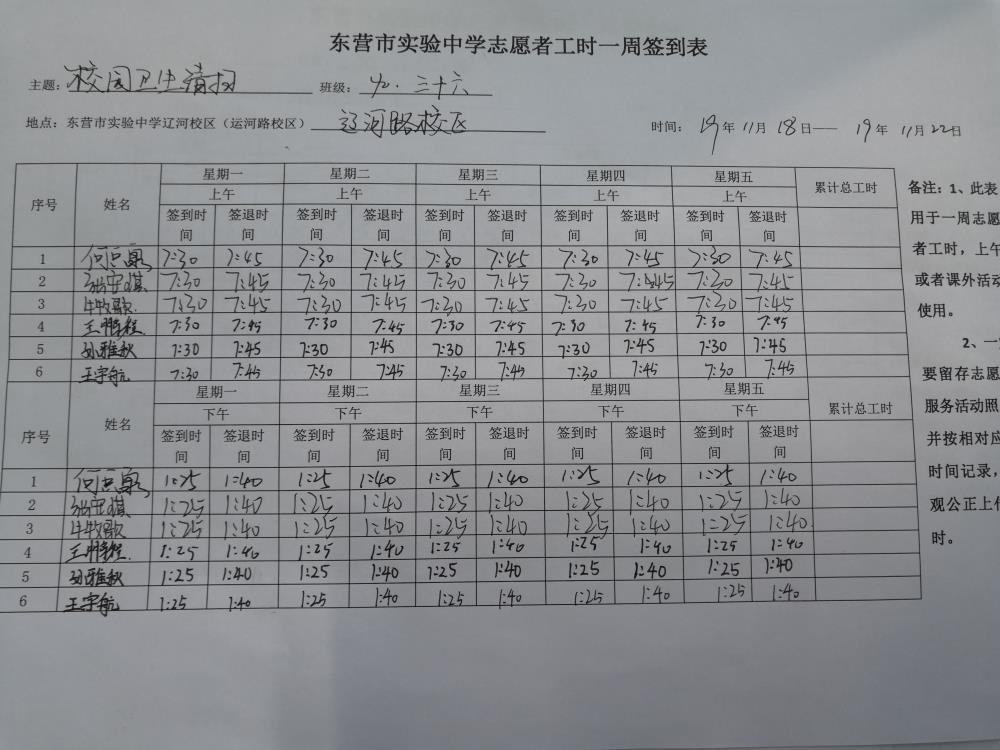 东营市实验中学志愿者工时一周签到表
主题: 校园卫生清扫 班级: 九.三十六
地点: 东营市实验中学辽河校区（运河路校区） 辽河路校区 时间: 19年11月18日——19年11月22日
序号 姓名 星期一 星期二 星期三 星期四 星期五 累计总工时
上午 上午 上午 上午 上午
签到时间 签退时间 签到时间 签退时间 签到时间 签退时间 签到时间 签退时间 签到时间 签退时间
1 7:30 7:45 7:30 7:45 7:30 7:45 7:30 7:45 7:30 7:45
2 7:30 7:45 7:30 7:45 7:30 7:45 7:30 7:45 7:30 7:45
3 牛牧歌 7:30 7:45 7:30 7:45 7:30 7:45 7:30 7:45 7:30 7:45
4 王 7:30 7:45 7:30 7:45 7:30 7:45 7:30 7:45 7:30 7:45
5 孙雅秋 7:30 7:45 7:30 7:45 7:30 7:45 7:30 7:45 7:30 7:45
6 王宇航 7:30 7:45 7:30 7:45 7:30 7:45 7:30 7:45 7:30 7:45
序号 姓名 星期一 星期二 星期三 星期四 星期五 累计总工时
下午 下午 下午 下午 下午
签到时间 签退时间 签到时间 签退时间 签到时间 签退时间 签到时间 签退时间 签到时间 签退时间
1 1:25 1:40 1:25 1:40 1:25 1:40 1:25 1:40 1:25 1:40
2 1:25 1:40 1:25 1:40 1:25 1:40 1:25 1:40 1:25 1:40
3 牛牧歌 1:25 1:40 1:25 1:40 1:25 1:40 1:25 1:40 1:25 1:40
4 王 1:25 1:40 1:25 1:40 1:25 1:40 1:25 1:40 1:25 1:40
5 孙雅秋 1:25 1:40 1:25 1:40 1:25 1:40 1:25 1:40 1:25 1:40
6 王宇航 1:25 1:40 1:25 1:40 1:25 1:40 1:25 1:40 1:25 1:40
备注: 1、此表
用于一周志愿
者工时，上午
或者课外活动
使用。
2、一
要留存志愿
服务活动照
并按相对应
时间记录，
观公正上传
时。